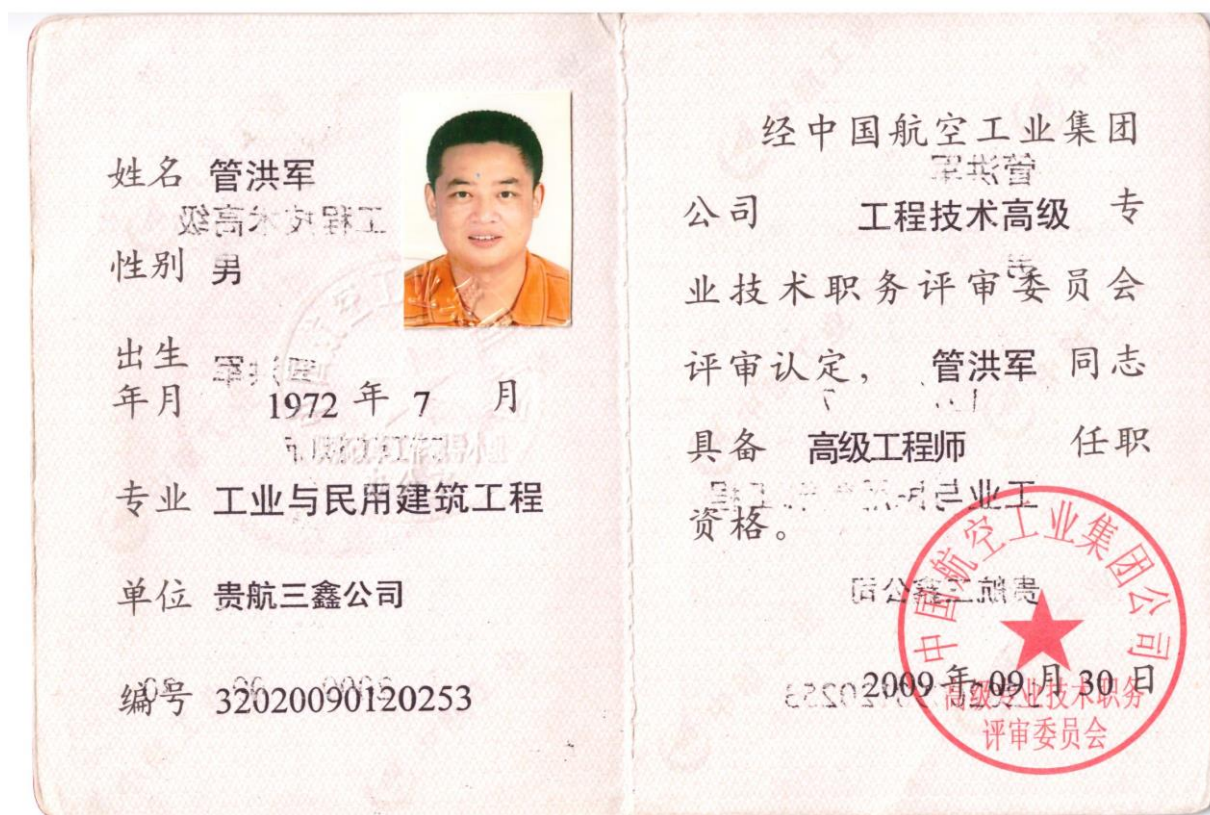 姓名 管洪军
性别 男
出生
年月 1972 年 7 月
专业 工业与民用建筑工程
单位 贵航三鑫公司
编号 32020090120253
经中国航空工业集团
公司 工程技术高级 专
业技术职务评审委员会
评审认定， 管洪军 同志
具备 高级工程师 任职
资格。
2009 年 09 月 30 日
中国航空工业集团公司
高级专业技术职务
评审委员会